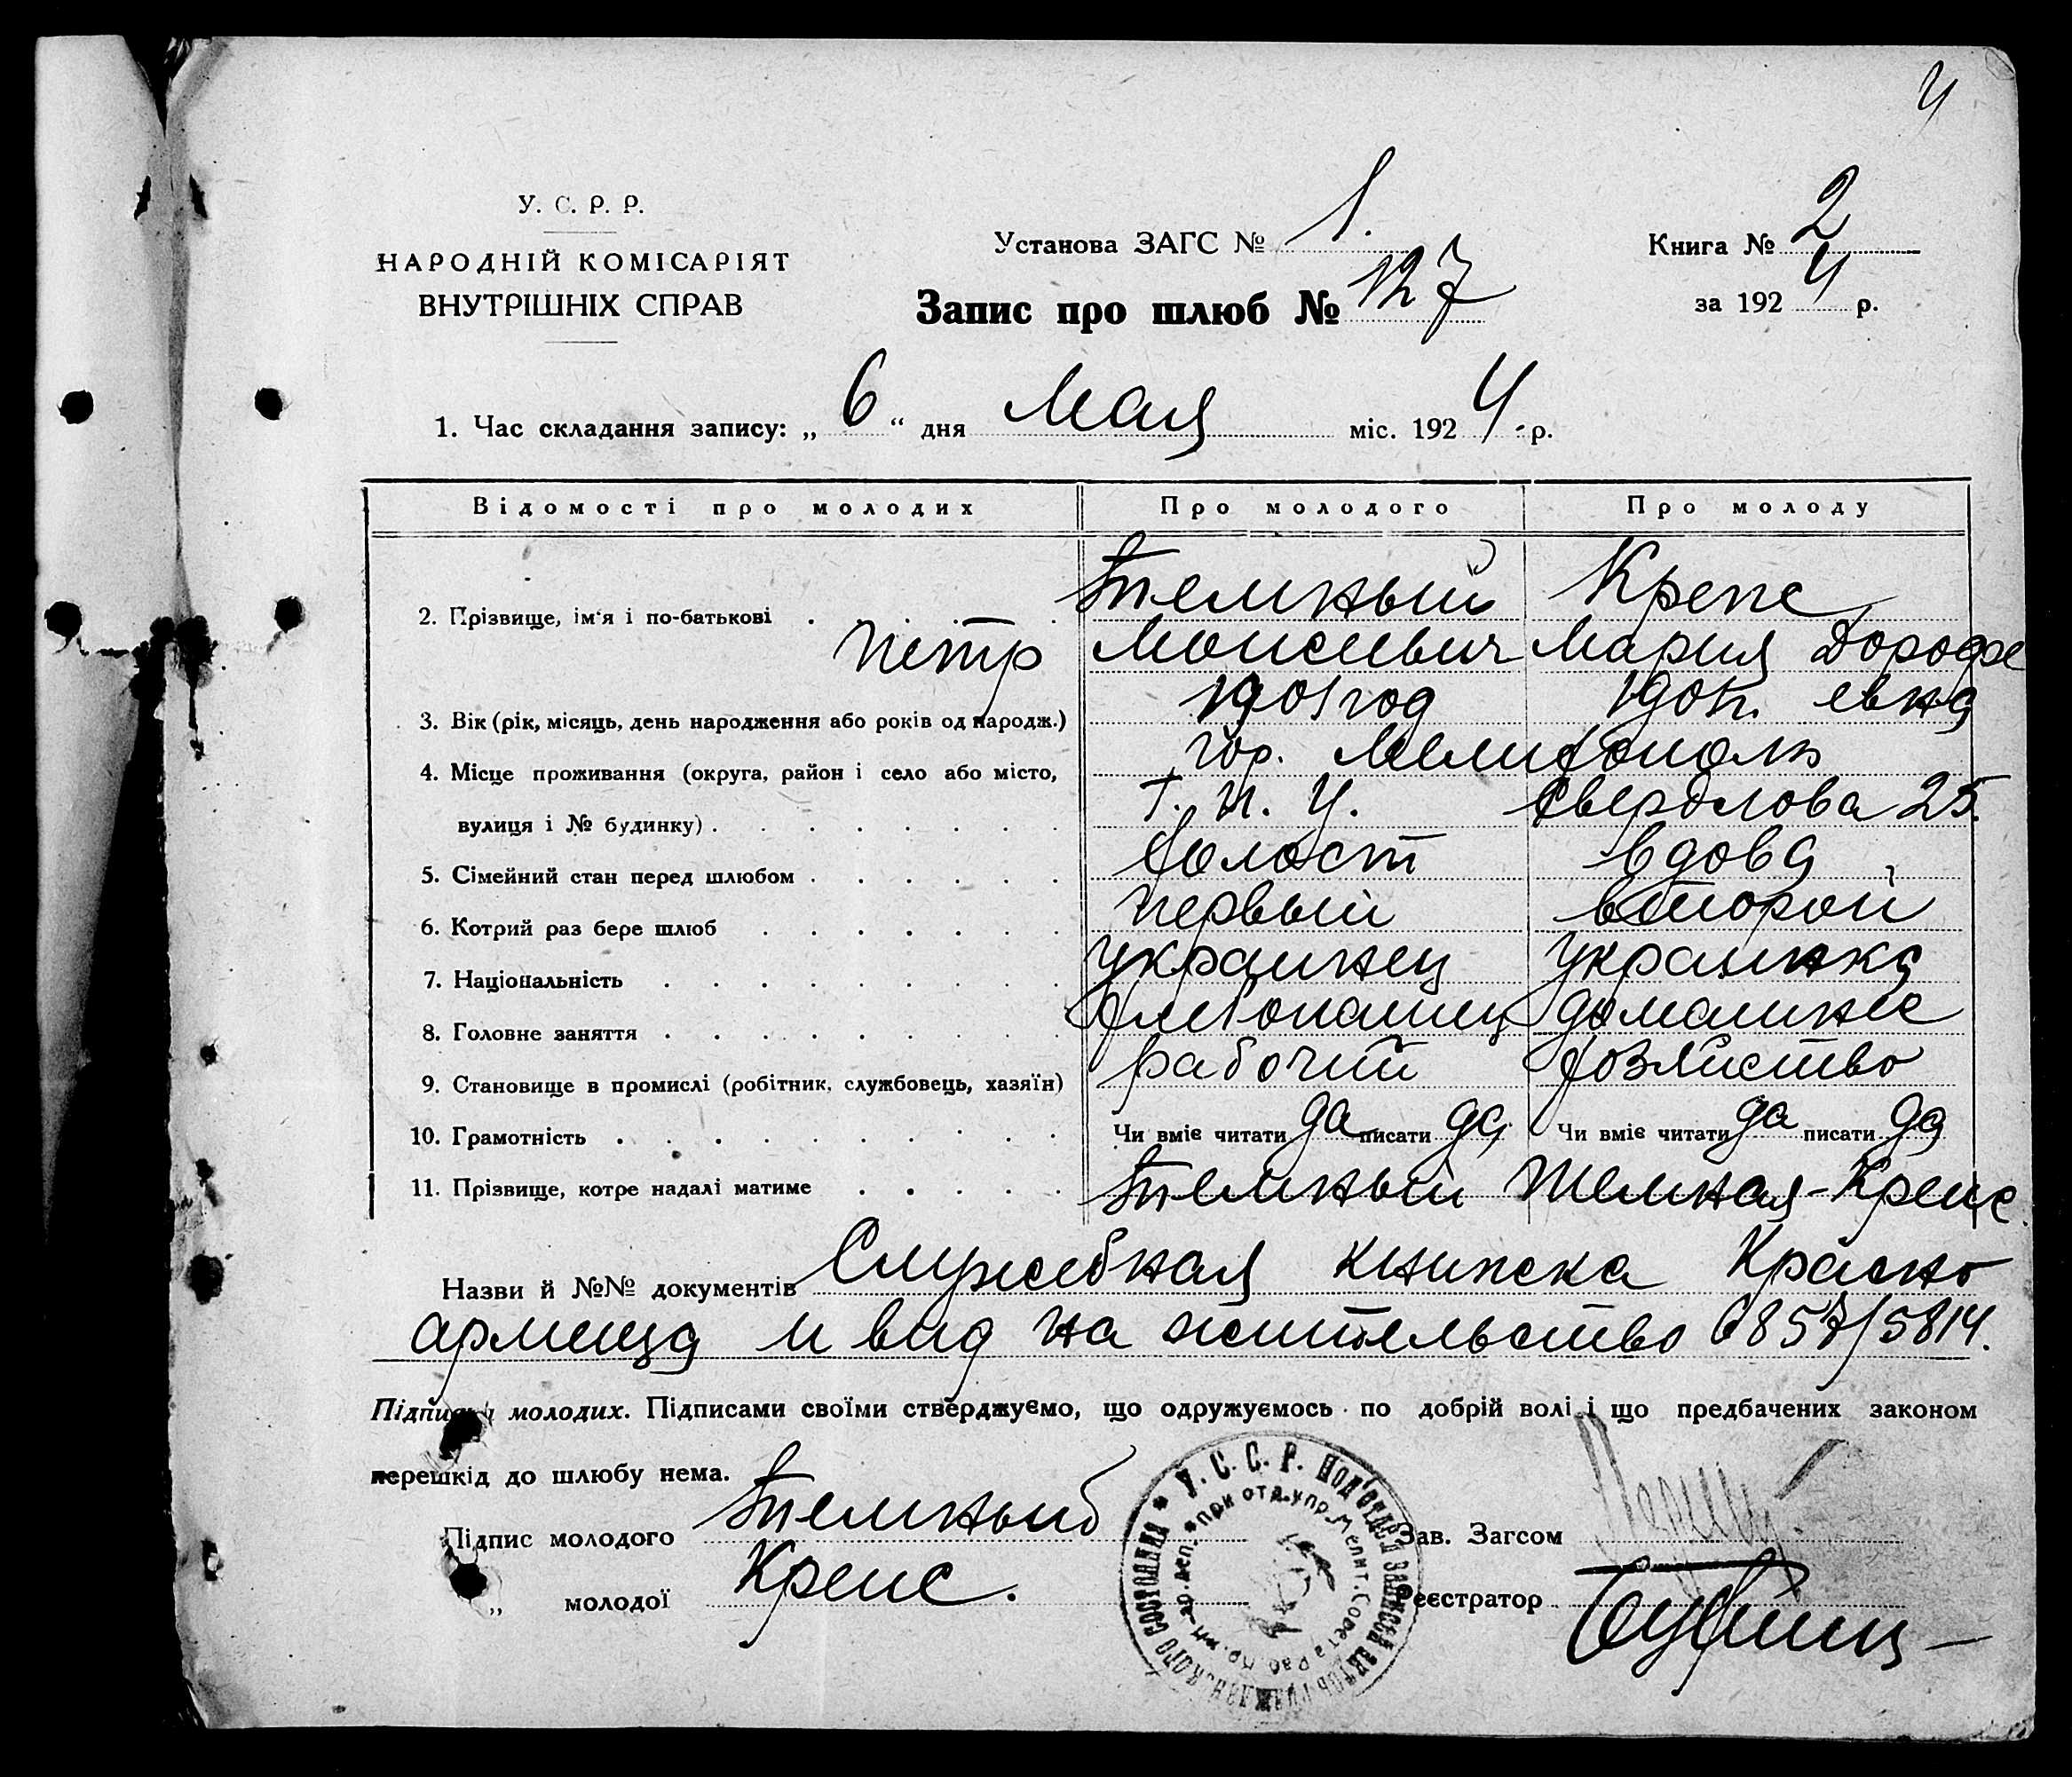 4
У. С. Р. Р.
НАРОДНІЙ КОМІСАРІЯТ
ВНУТРІШНІХ СПРАВ
Установа ЗАГС № 1.
Книга № 2
Запис про шлюб № 127
за 1924 р.
1. Час складання запису: „ 6 “ дня Мая міс. 1924 р.
Відомості про молодих Про молодого Про молоду
Темный Крепс
2. Прізвище, ім'я і по-батькові
Петр Моисеевич Мария Дорофе
3. Вік (рік, місяць, день народження або років од народж.) 1901 год 1901 г. евна
4. Місце проживання (округа, район і село або місто, гор. Мелитополь
вулиця і № будинку) Свердлова 25.
5. Сімейний стан перед шлюбом холост вдова
6. Котрий раз бере шлюб первый второй
7. Національність украинец украинка
8. Головне заняття домашнее
9. Становище в промислі (робітник, службовець, хазяїн) рабочий хозяйство
10. Грамотність Чи вміє читати да писати да Чи вміє читати да писати да
11. Прізвище, котре надалі матиме Темный Темная-Крепс
Назви й №№ документів Служебная книжка Красно
армейца и вид на жительство 6857/5814.
Підписи молодих. Підписами своїми стверджуємо, що одружуємось по добрій волі і що предбачених законом
перешкід до шлюбу нема.
Підпис молодого Темный
Зав. Загсом
„ молодої Крепс.
Реєстратор
У. С. С. Р. Под'отдел записей актов гражданского состояния
при отд. упр. Мелит. Совета Раб. Кр.